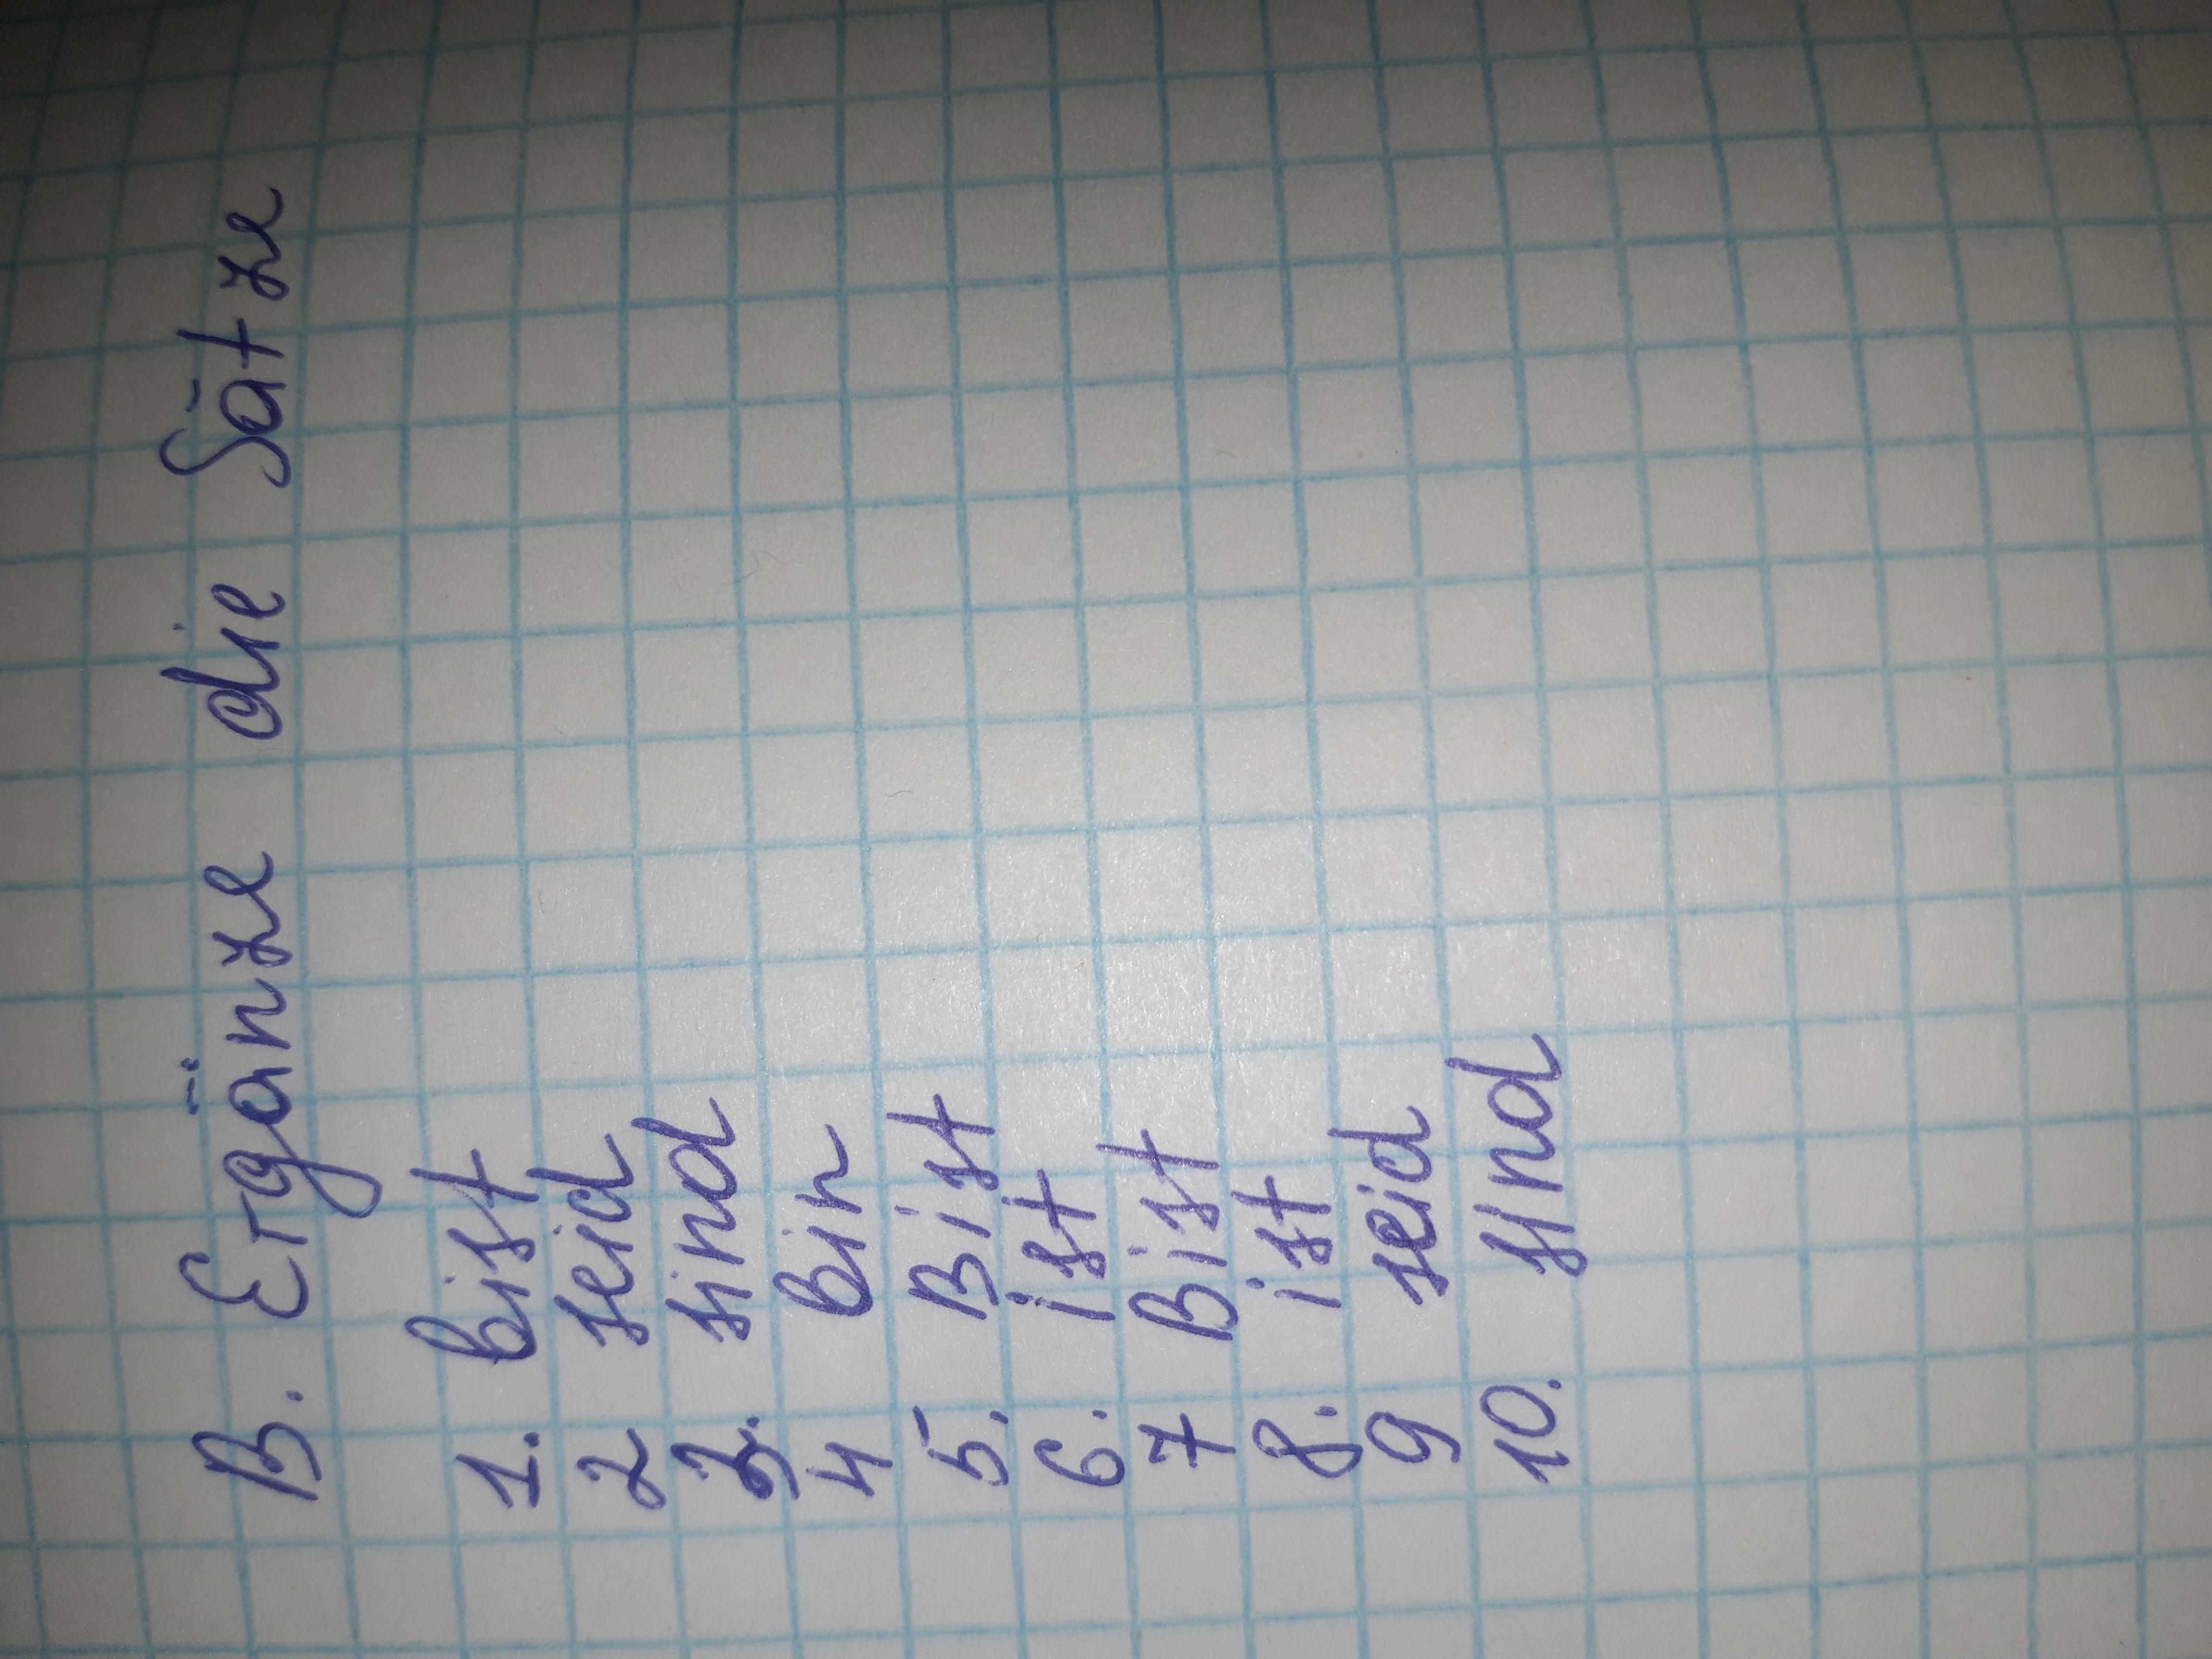 B. Ergänze die Sätze
1. bist
2 seid
3. sind
4 bin
5. Bist
6. ist
7 Bist
8. ist
9 seid
10. sind